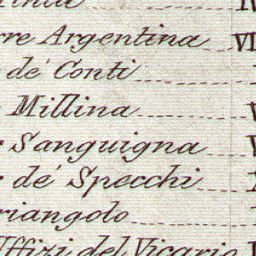 rre Argentina VI
de' Conti
Millina
Sanguigna
de' Specchi
riangolo
Uffizi del Vicario